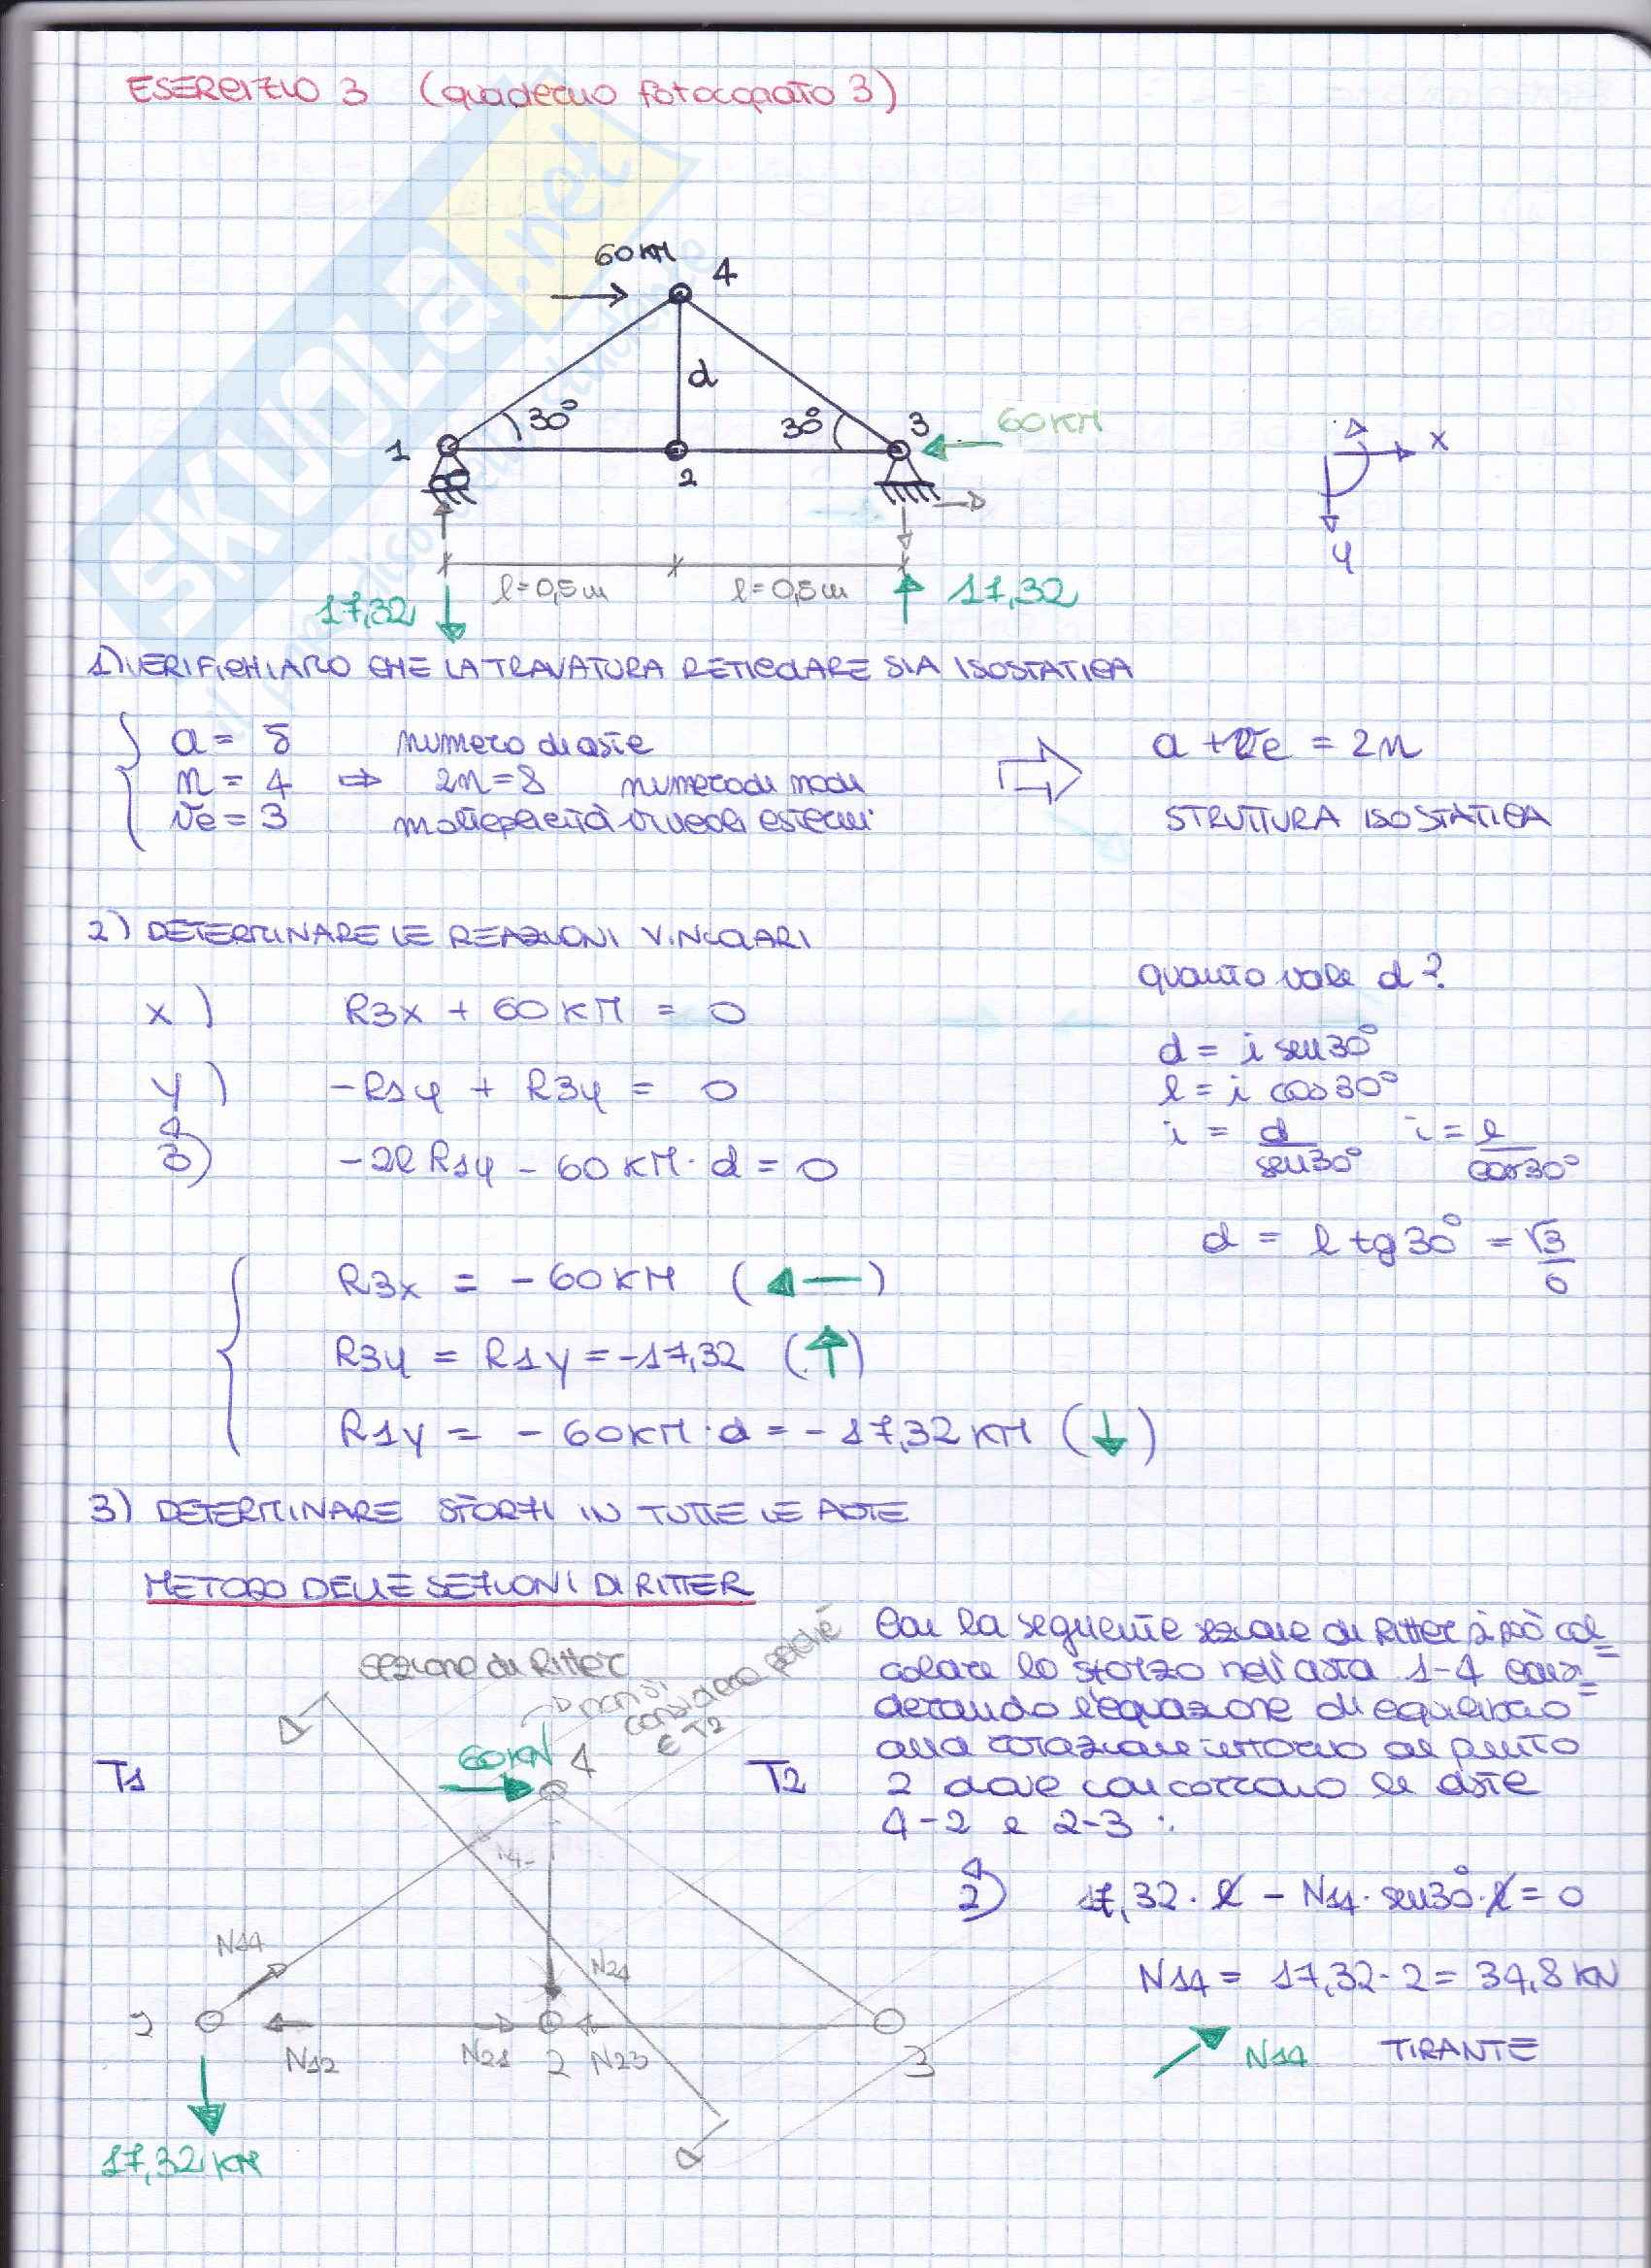 ESERCIZIO 3 (quaderno fotocopiato 3)
SKUOLA.net
60 KN
4
d
30°
30°
1
2
3
60 KN
x
y
l=0,5m
l=0,5m
17,32
17,32
1) VERIFICHIAMO CHE LA TRAVATURA RETICOLARE SIA ISOSTATICA
a = 5 numero di aste
n = 4 ⇒ 2n=8 numero di nodi
ve = 3 molteplicità vincoli esterni
a + ve = 2n
STRUTTURA ISOSTATICA
2) DETERMINARE LE REAZIONI VINCOLARI
x) R3x + 60 KN = 0
y) -R1y + R3y = 0
3) -2l R1y - 60 KN · d = 0
quanto vale d?
d = i sen30°
l = i cos30°
i = d/sen30° i = l/cos30°
d = l tg 30° = √3/6
R3x = - 60 KN (←)
R3y = R1y = -17,32 (↑)
R1y = - 60 KN · d = - 17,32 KN (↓)
3) DETERMINARE SFORZI IN TUTTE LE ASTE
METODO DELLE SEZIONI DI RITTER
sezione di Ritter
non si
considera perché
è T2
T1
60 KN
4
T2
N14
N24
1
N12
N21
2
N23
3
17,32 KN
Con la seguente sezione di Ritter si può cal=
colare lo sforzo nell'asta 1-4 consi=
derando l'equazione di equilibrio
alla rotazione intorno al punto
2 dove concorrono le aste
4-2 e 2-3 :
2) 17,32 · l - N14 · sen30° · l = 0
N14 = 17,32 · 2 = 34,8 KN
N14 TIRANTE